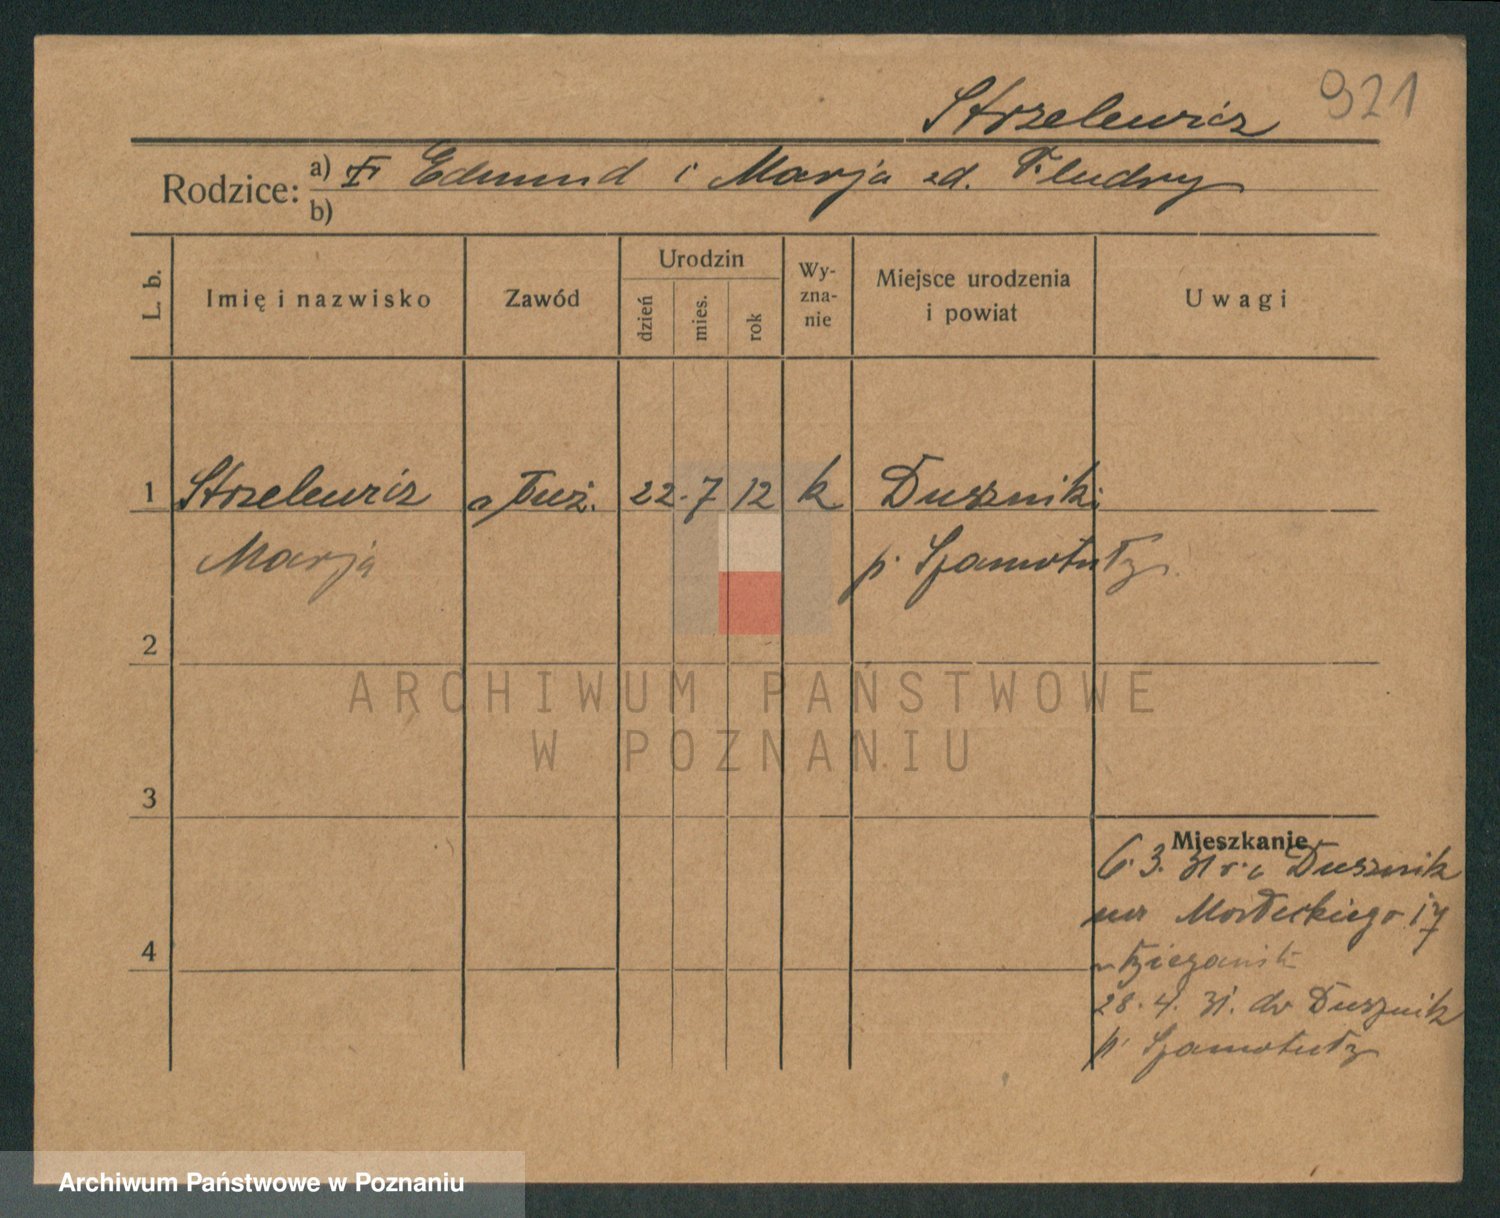 921
Strzelewicz
Rodzice: a) Edmund i Marja zd. Fludry
b)
L. b. Imię i nazwisko Zawód Urodzin dzień mies. rok Wyznanie Miejsce urodzenia i powiat Uwagi
1 Strzelewicz służ. 22. 7 12 k Duszniki
Marja p. Szamotuły
2
3
Mieszkanie
6. 3. 31 r. Dusznik
17
4
28. 4. 31. do Dusznik
p. Szamotuły
ARCHIWUM PAŃSTWOWE
W POZNANIU
Archiwum Państwowe w Poznaniu